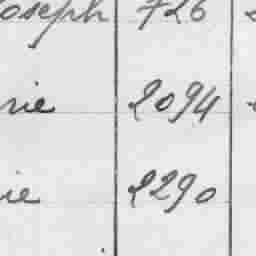 oseph 726
rie 2094
ie 2290